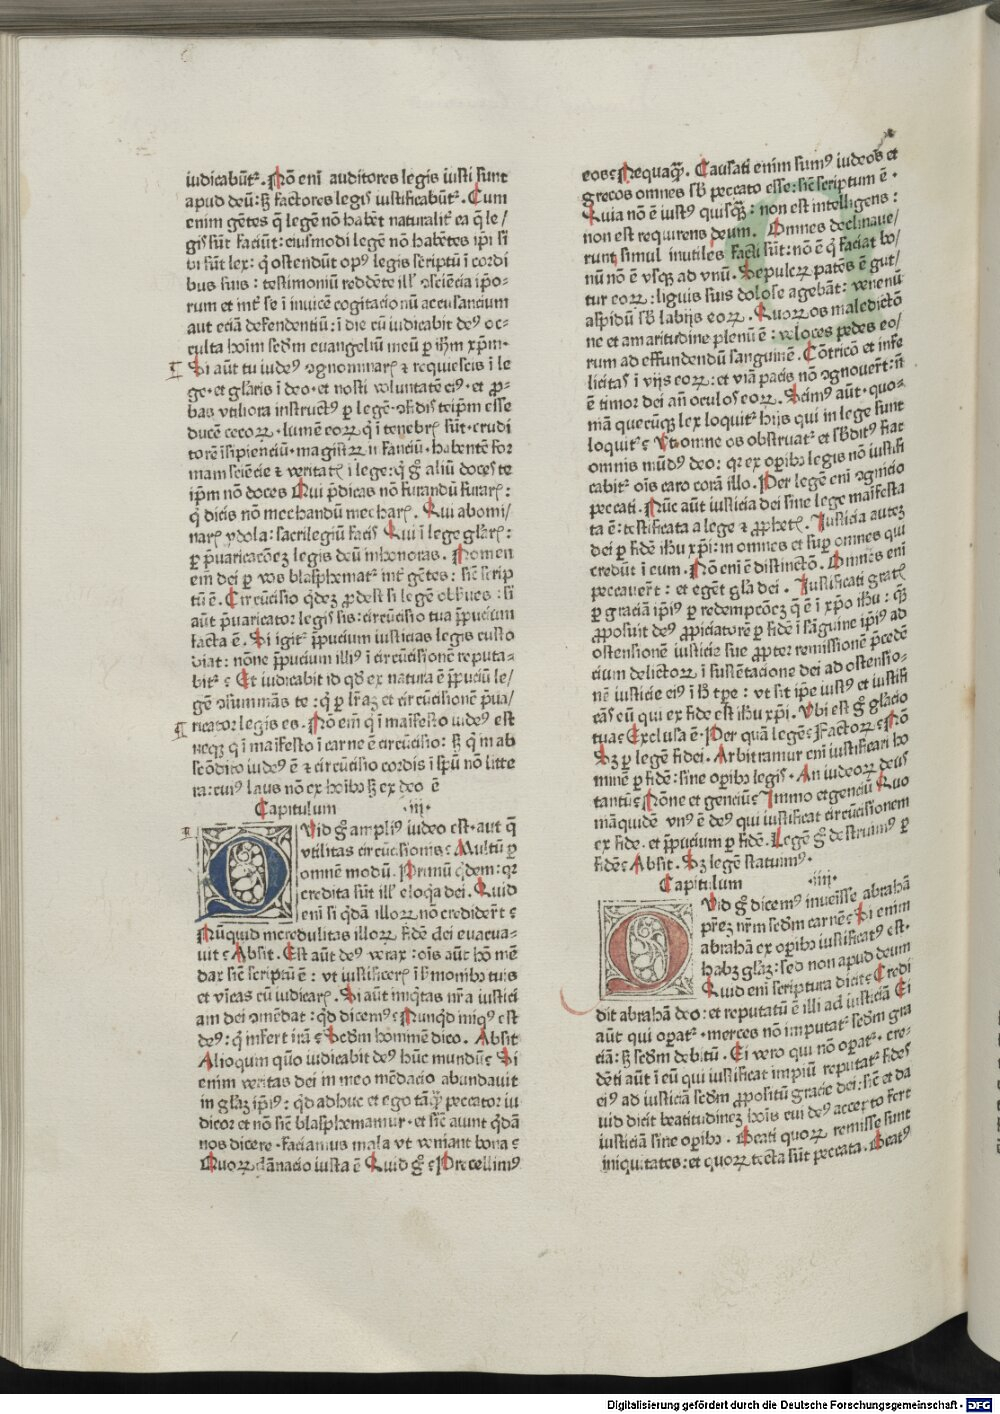 iudicabūt᷑. Nō eni auditores legis iusti sunt
apud deū: sꝫ factores legis iustificabūt᷑. Cum
enim gētes q̄ legē nō habēt naturalit᷑ ea q̄ le/
gis sūt faciūt: eiusmodi legē nō habētes ip̄i si
bi sūt lex: q̇ ostendūt opꝰ legis scriptū ī cordi
bus suis: testimoniū reddēte ill᷑ ꝯsciēcia ip̄o-
rum et int᷑ se ī inuicē cogitacionū accusancium
aut eciā defendentiū: ī die cū iudicabit deꝰ oc-
culta hoīm scdm euangeliū meū ꝑ ih̄m xp̄m.
Si aūt tu iudeꝰ ꝯgnominarꝭ ⁊ requiescis ī le
ge. et gl̄aris ī deo. et nosti voluntatē eiꝰ. et ꝓ-
bas vtiliora instructꝰ ꝑ legē. ꝯfidis teip̄m esse
ducē cecoꝝ. lumē eoꝝ q̇ ī tenebrꝭ sūt. erudi
torē īsipienciū. magistꝝ īfanciū. habentē for
mam sciēcie ⁊ veritatꝭ ī lege: q̇ gͦ aliū doces te
ip̄m nō doces Qui p̄dicas nō furandū furarꝭ:
q̇ dicis nō mechandū mecharꝭ. Qui abomi/
narꝭ ydola: sacrilegiū facis Qui ī lege gl̄arꝭ:
ꝑ p̄uaricacōeꝫ legis deū inhonoras. Nomen
em̄ dei ꝑ vos blasphemat᷑ int᷑ gētes: sic̄ scrip
tū ē. Circūcisio q̇deꝫ ꝓdest si legē obẜues: si
aūt p̄uaricator legis sis: circūcisio tua p̄pucium
facta ē. Si igit᷑ p̄pucium iusticias legis custo
diat: nōne p̄pucium illiꝰ ī circūcisionē reputa-
bit᷑ ? Et iudicabit id qd̄ ex natura ē p̄puciū le/
gē ꝯsummās te: q̇ ꝑ lr̄aꝫ et circūcisionē p̄ua/
ricator legis es. Nō em̄ q̇ ī maīfesto iudeꝰ est
neqꝫ q̇ ī maīfesto ī carne ē circūcisio: sꝫ q̇ in ab
scōdito iudeꝰ ē ⁊ circūcisio cordis ī sp̄ū nō litte
ra: cuiꝰ laus nō ex hoībꝰ sꝫ ex deo ē
Capitulum .iij.
Quid gͦ ampliꝰ iudeo est. aut q̄
vtilitas circūcisionis? Multū ꝑ
omnē modū. Primū q̇dem: qꝛ
credita sūt ill᷑ eloq̄a dei. Quid
eni si q̇dā illoꝝ nō crediderūt ?
Nūquid incredulitas illoꝝ fidē dei euacua-
uit ? Absit. Est aūt deꝰ verax: oīs aūt hō mē
dax sic̄ scriptū ē: vt iustificerꝭ ī ẜmonibꝰ tuis
et vīcas cū iudicarꝭ. Si aūt iniq̇tas nr̄a iustici
am dei ꝯmēdat: qd̄ dicemꝰ ? Nunqd iniqꝰ est
deꝰ: q̇ infert irā ? Scdm hominē dico. Absit
Alioquin quō iudicabit deꝰ hūc mundū? Si
enim veritas dei in meo mēdacio abundauit
in gl̄aꝫ ip̄iꝰ: qd̄ adhuc et ego tāqͣꝫ peccator iu
dicor et nō sic̄ blasphemamur. et sic̄ aiunt q̇dā
nos dicere. faciamus mala vt veniant bona ?
Quoꝝ dānacio iusta ē Quid gͦ ? Precellimꝰ
eos? Nequaqͣꝫ. Causati enim sumꝰ iudeos et
grecos omnes sb̄ peccato esse: sic̄ scriptum ē.
Quia nō ē iustꝰ quisqͣꝫ: non est intelligens:
non est requirens deum. Omnes declinaue/
runt simul inutiles facti sūt: nō ē q̇ faciat bo/
nū nō ē vsqꝫ ad vnū. Sepulcꝝ patēs ē gut/
tur eoꝝ: liguis suis dolose agebāt: venenū
aspidū sb̄ labijs eoꝝ. Quoꝝ os maledictō
ne et amaritudine plenū ē: veloces pedes eo/
rum ad effundendū sanguinē. Cōtricō et īfe
licitas ī vijs eoꝝ: et viā pacis nō ꝯgnouerūt: nō
ē timor dei an̄ oculos eoꝝ. Scimꝰ aūt. quo-
niā quecūqꝫ lex loquit᷑ hijs qui in lege sunt
loquit᷑? Vt omne os obstruat᷑ et sb̄ditꝰ fiat
omnis mūdꝰ deo: qꝛ ex oꝑibꝰ legis nō iustifi
cabit᷑ oīs caro corā illo. Per legē eni ꝯgnicio
peccati. Nūc aūt iusticia dei sine lege maīfesta
ta ē: testificata a lege ⁊ ꝓphetꝭ. Iusticia autez
dei ꝑ fidē ih̄u xp̄i: in omnes et suꝑ omnes qui
credūt ī eum. Nō eni ē distinctō. Omnes eni
peccauerūt: et egēt gl̄a dei. Iustificati gratꝭ
ꝑ graciā ip̄iꝰ ꝑ redempcōeꝫ q̄ ē ī xp̄o ih̄u: qͣꝫ
ꝓposuit deꝰ ꝓpiciatorē ꝑ fidē ī sāguine ip̄iꝰ ad
ostensionē iusticie sue ꝓpter remissionē p̄cedē
cium delictoꝝ ī sustētacione dei ad ostensio-
nē iusticie eiꝰ ī hͦ tꝑe: vt sit ip̄e iustꝰ et iustifi
cās eū qui ex fide est ih̄u xp̄i. Vbi est gͦ gl̄acio
tua? Exclusa ē. Per quā legē? Factoꝝ? Nō
Sꝫ ꝑ legē fidei. Arbitramur eni iustificari ho
minē ꝑ fidē: sine oꝑibꝰ legis. An iudeoꝝ deus
tantū? Nōne et genciū? Immo et genciū Quo
niā quidē vnꝰ ē deꝰ qui iustificat circūcisionem
ex fide. et p̄pucium ꝑ fidē. Legē gͦ destruimꝰ ꝑ
fidē? Absit. Sꝫ legē statuimꝰ.
Capitulum .iiij.
Quid gͦ dicemꝰ inuenisse abrahā
pr̄eꝫ nr̄m scdm carnē? Si enim
abrahā ex oꝑibꝰ iustificatꝰ est.
habꝫ gl̄aꝫ: sed non apud deum
Quid eni scriptura dicit? Credi
dit abrahā deo: et reputatū ē illi ad iusticiā Ei
aūt qui oꝑat᷑. merces nō imputat᷑ scdm gra
ciā: sꝫ scdm debitū. Ei vero qui nō oꝑat᷑. cre-
dēti aūt ī eū qui iustificat impiū reputat᷑ fides
eiꝰ ad iusticiā scdm ꝓpositū gracie dei: sic̄ et da
uid dicit beatitudineꝫ hoīs cui deꝰ accepto fert
iusticiā sine oꝑibꝰ. Beati quoꝝ remisse sunt
iniquitates: et quoꝝ tecta sūt peccata. Beatꝰ
Digitalisierung gefördert durch die Deutsche Forschungsgemeinschaft - DFG